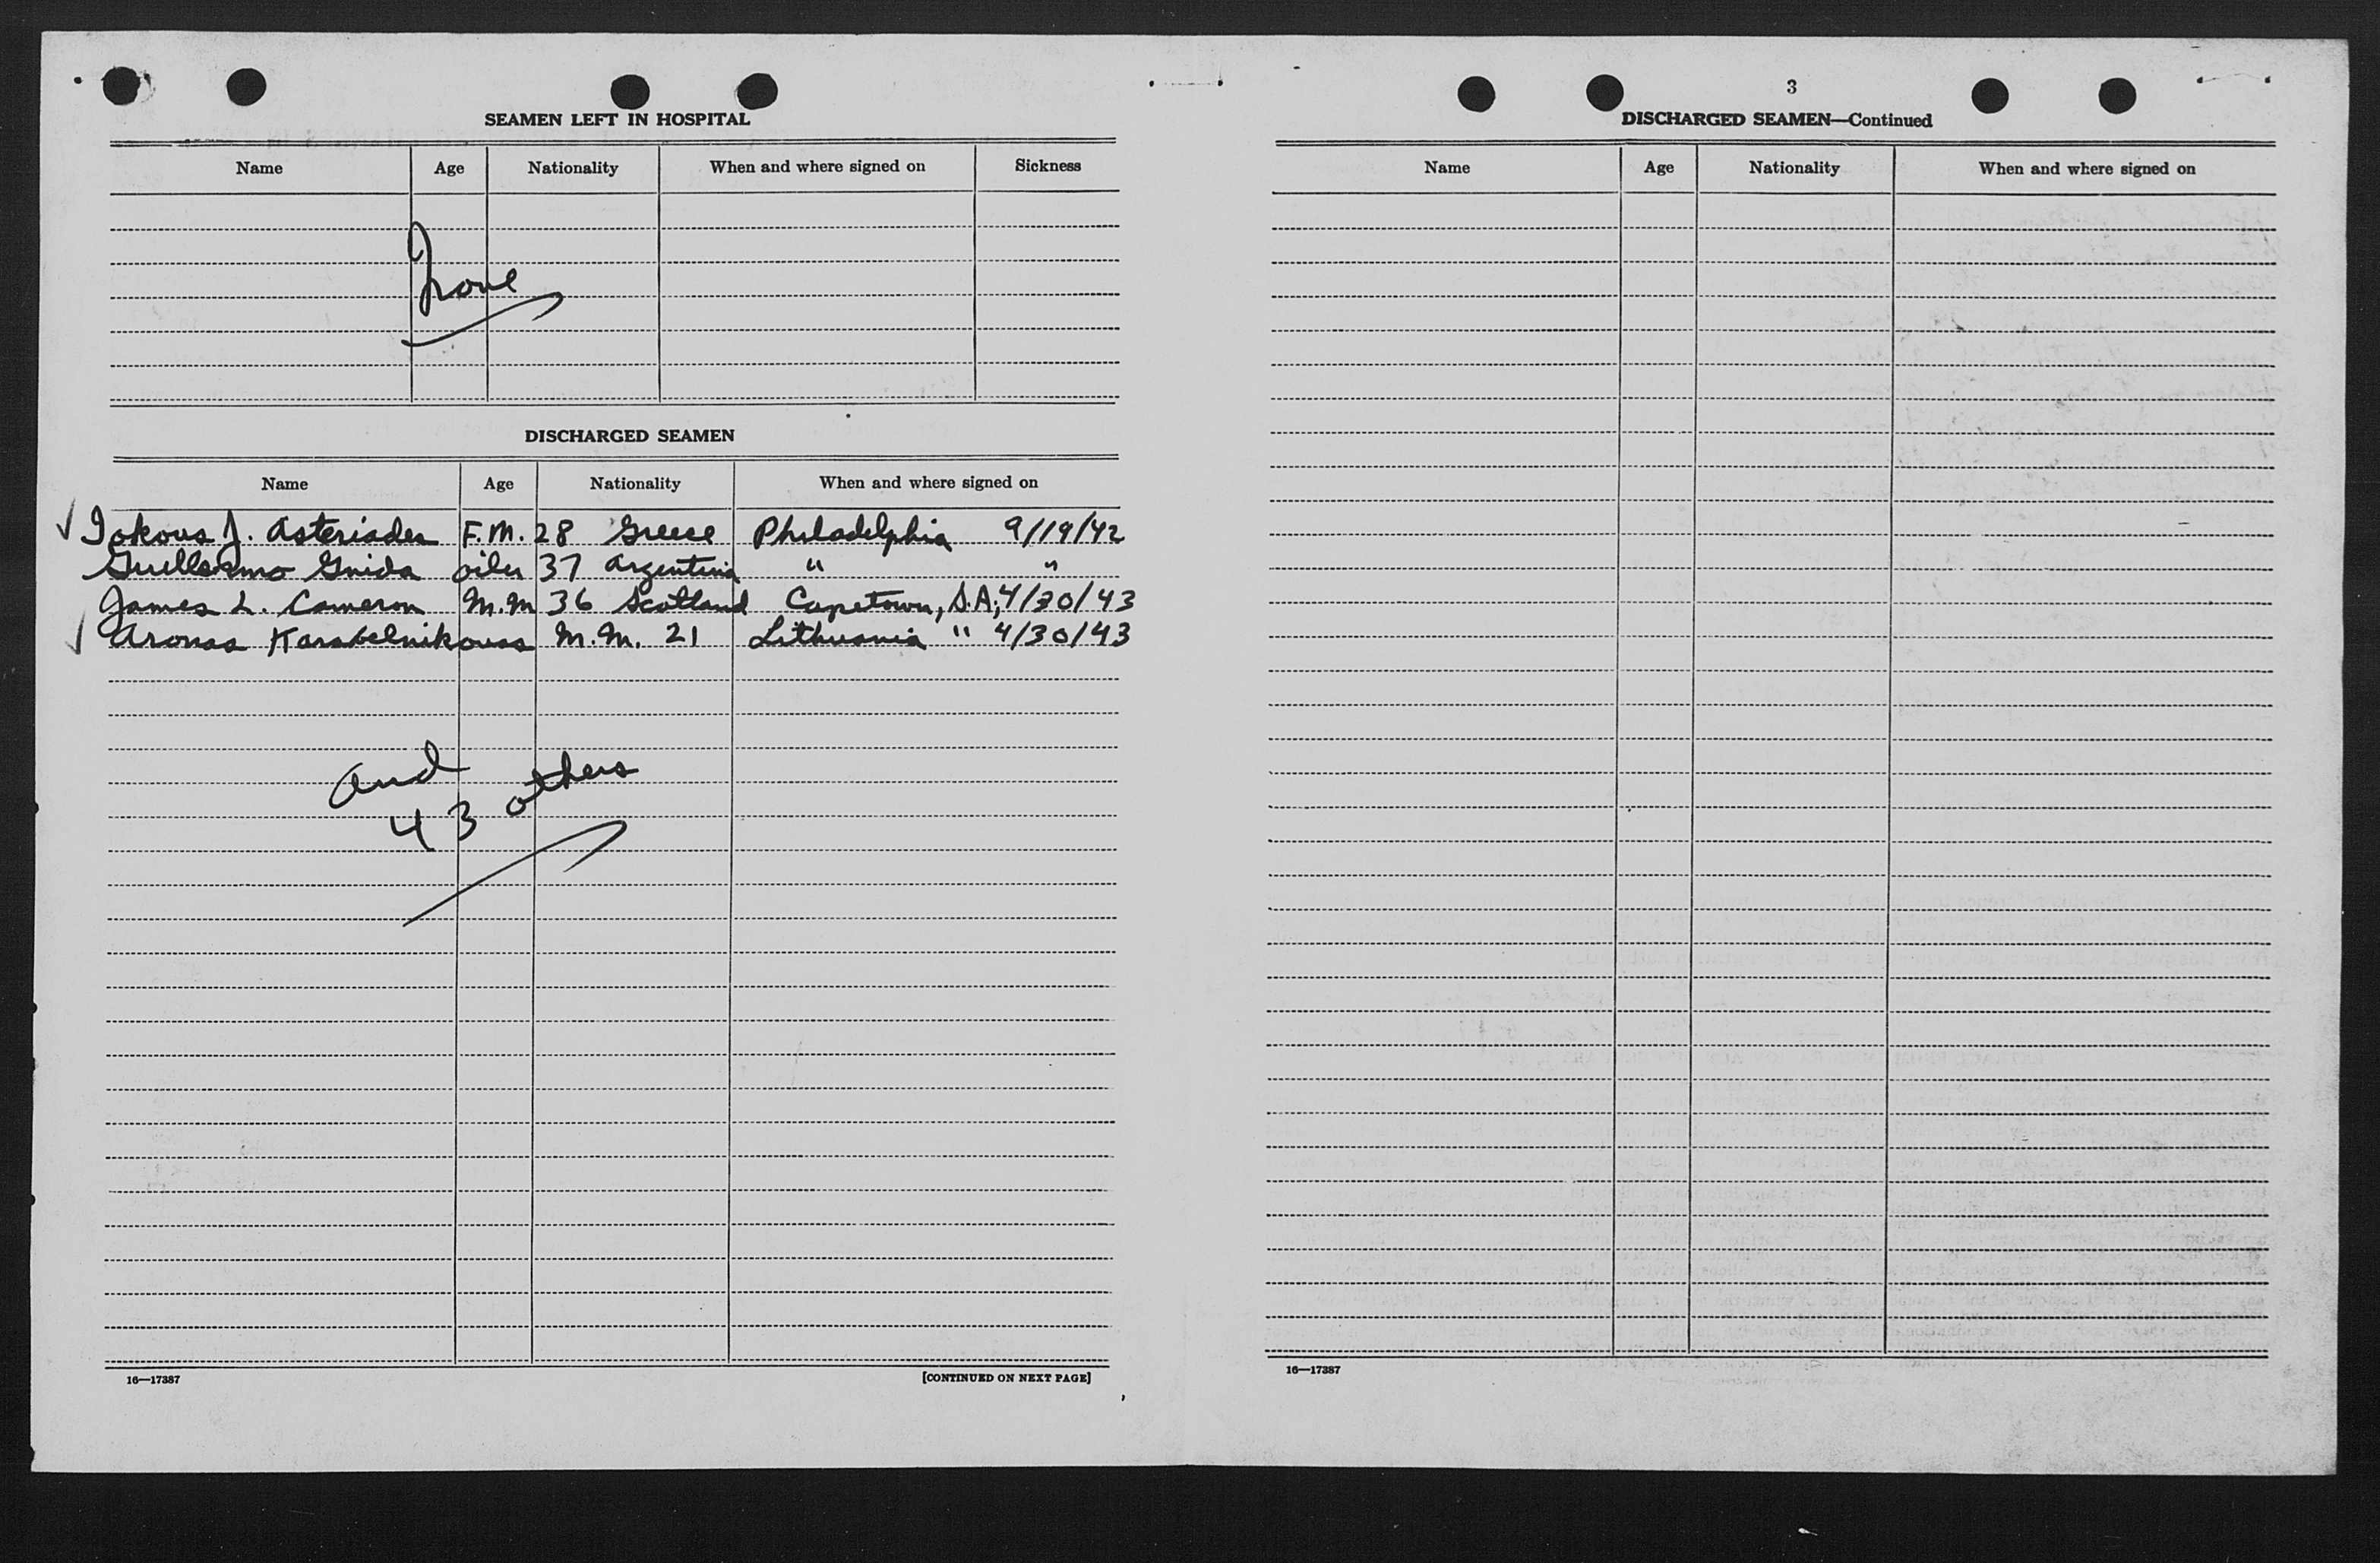 SEAMEN LEFT IN HOSPITAL
Name Age Nationality When and where signed on Sickness
None
DISCHARGED SEAMEN
Name Age Nationality When and where signed on
Iakovos J. Asteriades F.M. 28 Greece Philadelphia 9/19/42
Guillermo Guida oiler 37 Argentina " "
James L. Cameron M.M 36 Scotland Capetown, S.A; 4/30/43
Aronas Karabelnikovas M.M. 21 Lithuania " 4/30/43
and
43 others
16—17387 [CONTINUED ON NEXT PAGE]
3
DISCHARGED SEAMEN—Continued
Name Age Nationality When and where signed on
16—17387